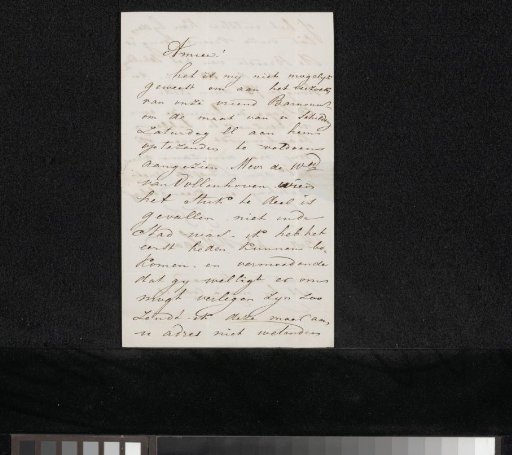 Amice!
het is my niet mogelyk
geweest om aan het verzoek
van onze vriend
om de maat van u
Zaturdag ll aan hem
optezenden te voldoen
aangezien Mevr de Wed
van Vollenhoven wien
het te deel is
gevallen niet in de
Stad was. ik heb het
eerst heden kunnen be
komen. en vermoedende
dat gy welligt er om
mogt verlegen zyn zoo
zendt ik deze maar aan
u adres niet wetende